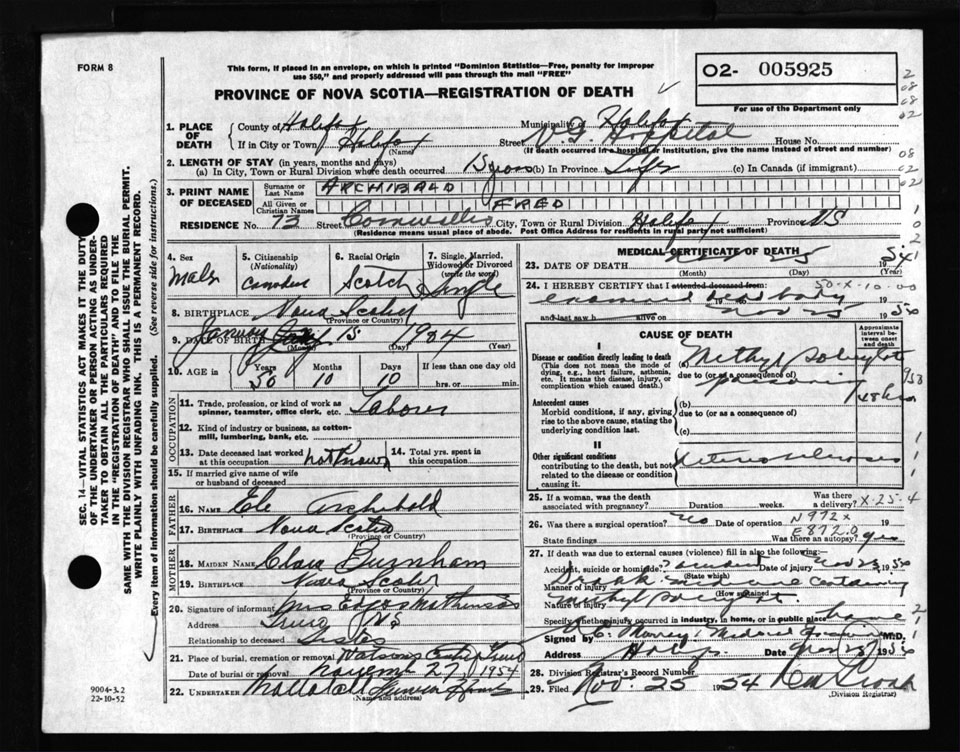 FORM 8
This form, if placed in an envelope, on which is printed "Dominion Statistics—Free, penalty for improper
use $50," and properly addressed will pass through the mail "FREE"
O2- 005925
For use of the Department only
PROVINCE OF NOVA SCOTIA—REGISTRATION OF DEATH
1. PLACE OF DEATH
County of Halifax Municipality of Halifax
If in City or Town Halifax Street V.G. Hospital House No.
(Name) (If death occurred in a hospital or institution, give the name instead of street and number)
2. LENGTH OF STAY (in years, months and days)
(a) In City, Town or Rural Division where death occurred 15 years (b) In Province Life (c) In Canada (if immigrant)
3. PRINT NAME OF DECEASED
Surname or Last Name ARCHIBALD
All Given or Christian Names FRED
RESIDENCE No. 73 Street Cornwallis City, Town or Rural Division Halifax Province NS
(Residence means usual place of abode. Post Office Address for residents in rural parts not sufficient)
4. Sex
Male
5. Citizenship
(Nationality)
Canadian
6. Racial Origin
Scotch
7. Single, Married,
Widowed or Divorced
(write the word)
Single
8. BIRTHPLACE Nova Scotia
(Province or Country)
9. DATE OF BIRTH January 15 1904
(Month) (Day) (Year)
10. AGE in
Years Months Days If less than one day old
50 10 10 hrs. or min.
OCCUPATION
11. Trade, profession, or kind of work as
spinner, teamster, office clerk, etc. Laborer
12. Kind of industry or business, as cotton-
mill, lumbering, bank, etc.
13. Date deceased last worked
at this occupation not known
14. Total yrs. spent in
this occupation
15. If married give name of wife
or husband of deceased
FATHER
16. NAME Archibald
17. BIRTHPLACE Nova Scotia
(Province or Country)
MOTHER
18. MAIDEN NAME Clara Burnham
19. BIRTHPLACE Nova Scotia
(Province or Country)
20. Signature of informant Mrs
Address Truro NS
Relationship to deceased Sister
21. Place of burial, cremation or removal Truro
Date of burial or removal November 27, 1954
22. UNDERTAKER
MEDICAL CERTIFICATE OF DEATH
23. DATE OF DEATH 25 1954
(Month) (Day) (Year)
24. I HEREBY CERTIFY that I attended deceased from:
50-X-10-00
examined dead body
and last saw h alive on Nov 25 1954
CAUSE OF DEATH
Approximate interval between onset and death
I
Disease or condition directly leading to death
(This does not mean the mode of
dying, e.g., heart failure, asthenia,
etc. It means the disease, injury, or
complication which caused death.)
(a) Methyl
due to (or as a consequence of)
poisoning
48 hrs.
Antecedent causes
Morbid conditions, if any, giving
rise to the above cause, stating the
underlying condition last.
(b)
due to (or as a consequence of)
(c)
II
Other significant conditions
contributing to the death, but not
related to the disease or condition
causing it.
25. If a woman, was the death
associated with pregnancy? Duration weeks. Was there a delivery?
X-25-4
26. Was there a surgical operation? no Date of operation 19
N972X
State findings E872.0 Was there an autopsy? yes
27. If death was due to external causes (violence) fill in also the following:
Accident, suicide or homicide? accident Date of injury Nov 23 1954
(State which)
Manner of injury Drank medicine containing
(How sustained)
Nature of injury methyl
Specify whether injury occurred in industry, in home, or in public place home
Signed by Medical Examiner M.D.
Address Date Nov 25 1954
28. Division Registrar's Record Number
29. Filed Nov. 25 1954
(Division Registrar)
SEC. 14—VITAL STATISTICS ACT MAKES IT THE DUTY
OF THE UNDERTAKER OR PERSON ACTING AS UNDER-
TAKER TO OBTAIN ALL THE PARTICULARS REQUIRED
IN THE "REGISTRATION OF DEATH" AND TO FILE THE
SAME WITH THE DIVISION REGISTRAR WHO SHALL ISSUE THE BURIAL PERMIT.
WRITE PLAINLY WITH UNFADING INK. THIS IS A PERMANENT RECORD.
Every item of information should be carefully supplied. (See reverse side for instructions.)
9004-3.2
22-10-52